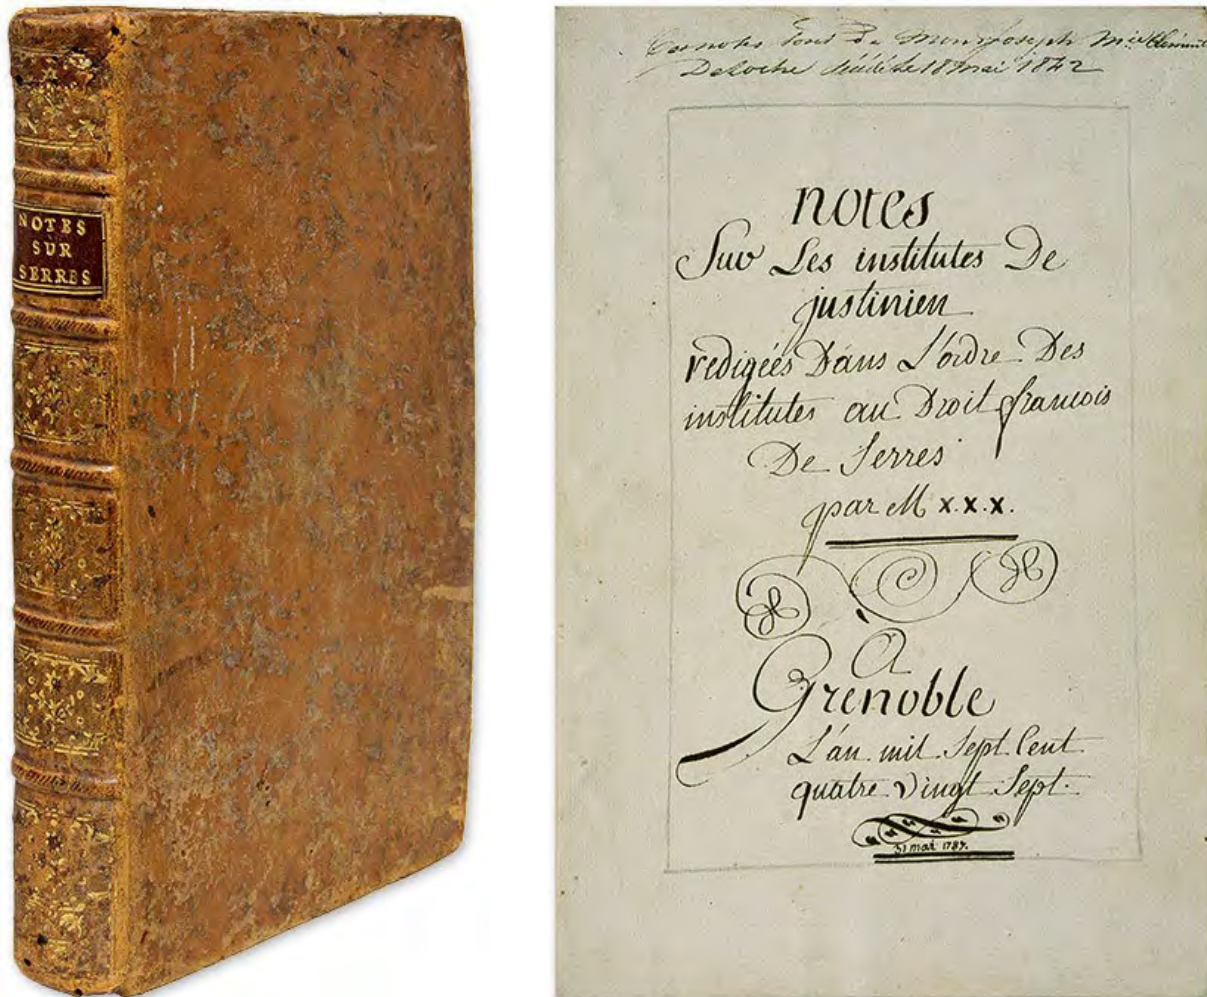 NOTES
SUR
SERRES
Ces notes sont de Joseph
Deloche décédé le 18 mai 1842
notes
Sur Les institutes De
justinien
redigées Dans L'ordre Des
institutes au Droit francois
De Serres
par M x.x.x.
À
Grenoble
L'an mil Sept Cent
quatre Vingt Sept.
31 mai 1787.